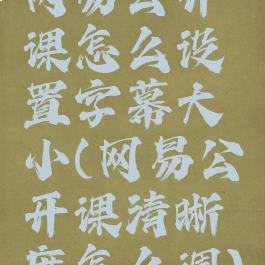 网易公开
课怎么设
置字幕大
小(网易公
开课清晰
度怎么调)